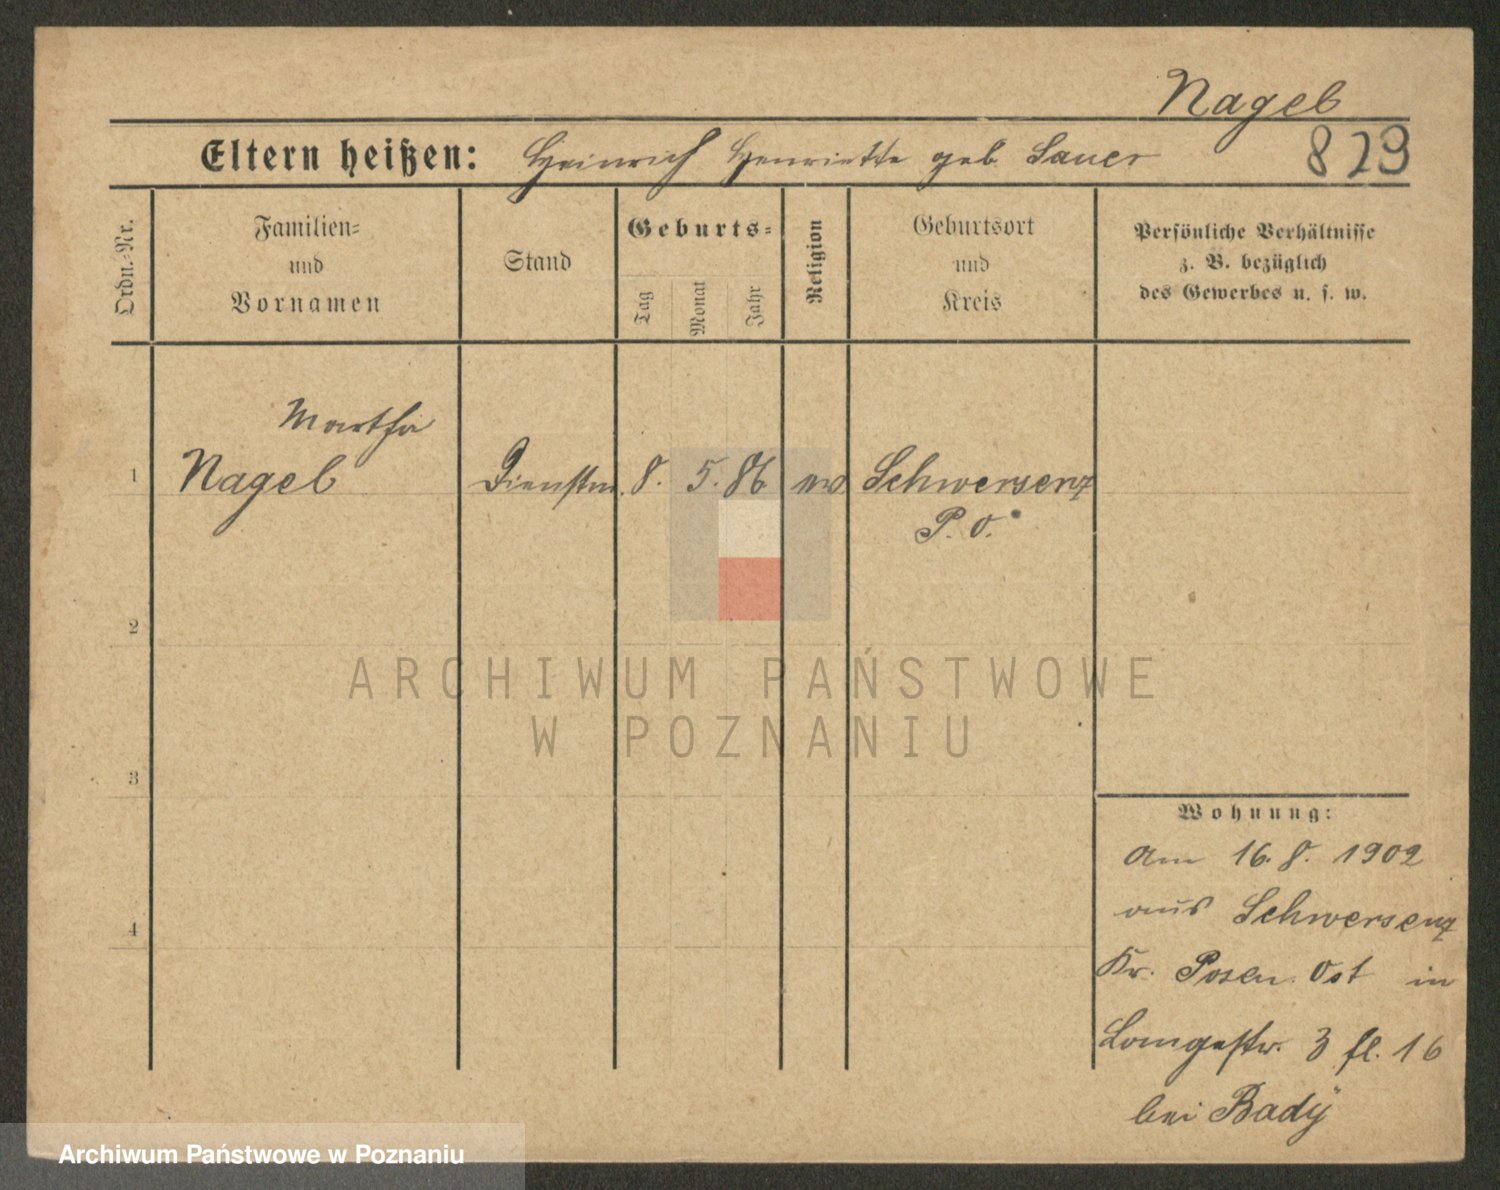 Nagel
Eltern heißen: Heinrich Henriette geb. Sauer 829
Ordn.-Nr.
Familien-
und
Vornamen
Stand
Geburts-
Tag
Monat
Jahr
Religion
Geburtsort
und
Kreis
Persönliche Verhältnisse
z. B. bezüglich
des Gewerbes u. s. w.
Martha
1 Nagel Dienstm. 8. 5. 86 ev Schwersenz
P. O.
2
3
4
Wohnung:
Am 16. 8. 1902
aus Schwersenz
Kr. Posen Ost in
Langestr. 3 fl. 16
bei Bady
ARCHIWUM PAŃSTWOWE
W POZNANIU
Archiwum Państwowe w Poznaniu